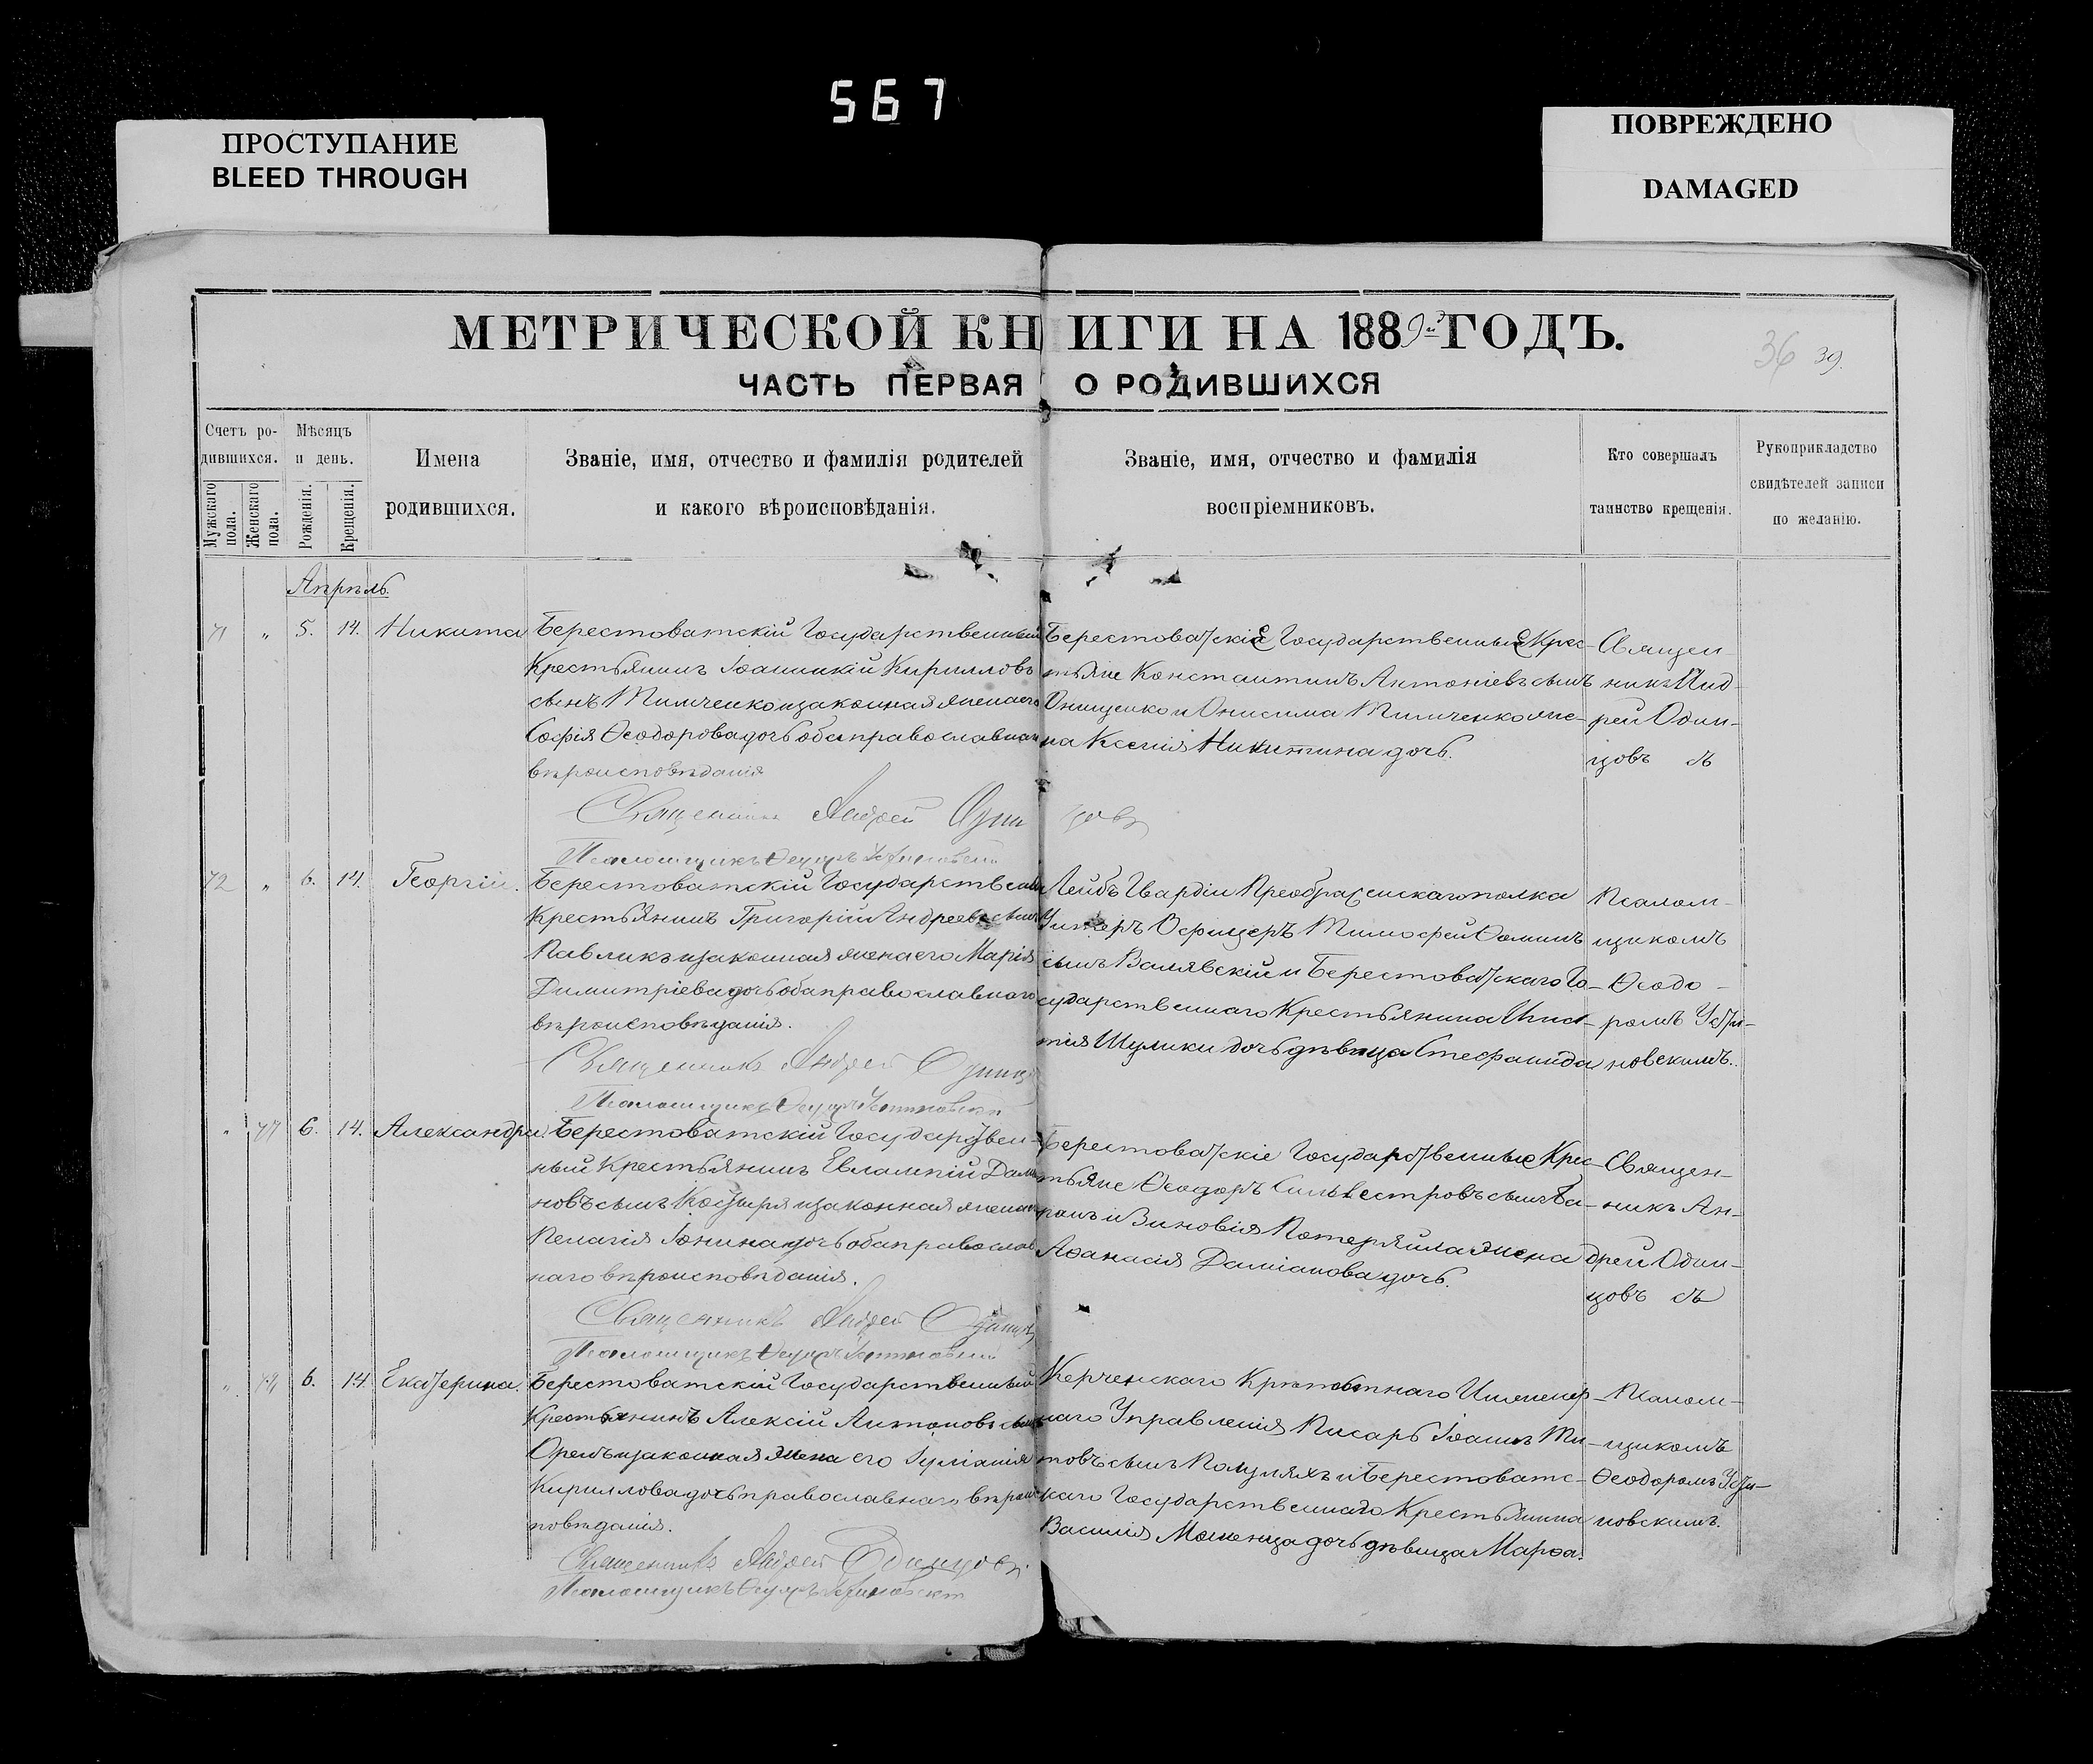 567
ПРОСТУПАНИЕ
BLEED THROUGH
ПОВРЕЖДЕНО
DAMAGED
МЕТРИЧЕСКОЙ КНИГИ НА 1889й ГОДЪ.
36 39.
ЧАСТЬ ПЕРВАЯ О РОДИВШИХСЯ
Счетъ ро-
дившихся.
Мужскаго пола.
Женскаго пола.
Мѣсяцъ
и день.
Рожденія.
Крещенія.
Имена
родившихся.
Званіе, имя, отчество и фамилія родителей
и какого вѣроисповѣданія.
Званіе, имя, отчество и фамилія
воспріемниковъ.
Кто совершалъ
таинство крещенія.
Рукоприкладство
свидѣтелей записи
по желанію.
Апрѣль.
71 " 5. 14. Никита
Берестоватскій Государственный
Крестьянинъ Іоанникій Кирилловъ
сынъ Тимченко и законная жена его
Софія Ѳеодорова дочь оба православнаго
вѣроисповѣданія
Священникъ Андрей Одинцовъ
Псаломщикъ Ѳеодоръ Устиновскій
Берестоватскіе Государственные Крес-
тьяне Константинъ Антоніевъ сынъ
Онищенко и Онисима Тимченко же-
на Ксенія Никитина дочь.
Священ-
никъ Анд-
рей Один-
цовъ съ
72 " 6. 14. Георгій.
Берестоватскій Государственный
Крестьянинъ Григорій Андреевъ сынъ
Павликъ и законная жена его Марія
Димитріева дочь оба православнаго
вѣроисповѣданія.
Священникъ Андрей Одинцовъ
Псаломщикъ Ѳеодоръ Устиновскій
Лейбъ Гвардіи Преображенскаго полка
Унтеръ Офицеръ Тимофей Ѳоминъ
сынъ Валявскій и Берестоватскаго Го-
сударственнаго Крестьянина Игна-
тія Шулики дочь дѣвица Стефанида
Псалом-
щикомъ
Ѳеодо-
ромъ Усти-
новскимъ.
" 77 6. 14. Александра.
Берестоватскій Государствен-
ный Крестьянинъ Евлампій Даміа-
новъ сынъ Костыря и законная жена его
Пелагія Іонина дочь оба православ-
наго вѣроисповѣданія.
Священникъ Андрей Одинцовъ
Псаломщикъ Ѳеодоръ Устиновскій
Берестоватскіе Государственные Крес-
тьяне Ѳеодоръ Сильвестровъ сынъ Та-
ранъ и Зиновія Потеряйла жена
Аѳанасія Даміанова дочь.
Священ-
никъ Ан-
дрей Один-
цовъ съ
" 78 6. 14. Екатерина.
Берестоватскій Государственный
Крестьянинъ Алексій Антоновъ сынъ
Орелъ и законная жена его Іуліанія
Кириллова дочь православнаго вѣроис-
повѣданія.
Священникъ Андрей Одинцовъ.
Псаломщикъ Ѳеодоръ Устиновскій
Керченскаго Крѣпостнаго Инженер-
наго Управленія Писарь Іоаннъ Ти-
товъ сынъ Полуляхъ и Берестоватс-
каго Государственнаго Крестьянина
Василія Моженца дочь дѣвица Марѳа.
Псалом-
щикомъ
Ѳеодоромъ Усти-
новскимъ.